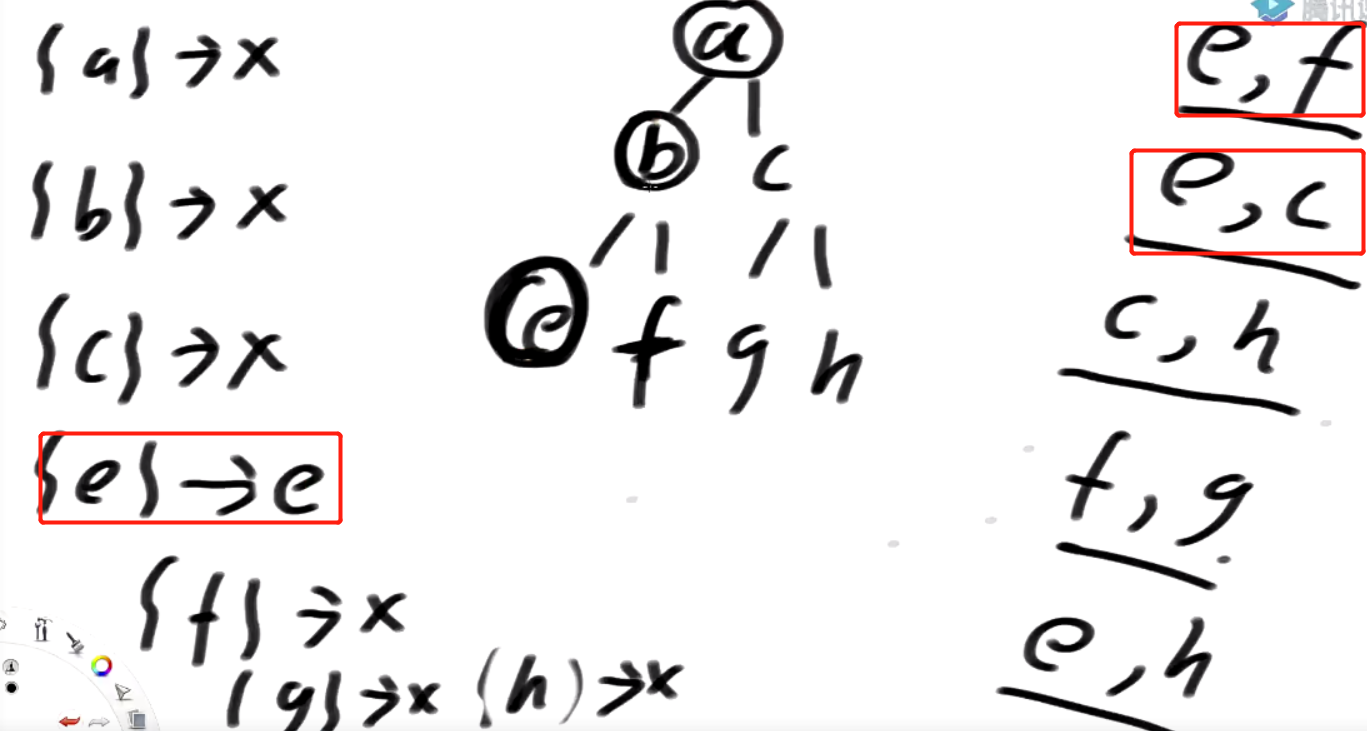 {a} → x
{b} → x
{c} → x
{e} → e
{f} → x
{g} → x (h) → x
a
b c
e f g h
腾讯
e, f
e, c
c, h
f, g
e, h